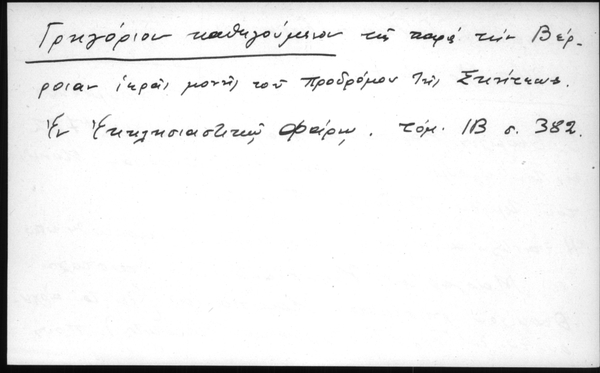 Γρηγόριον καθηγούμενον τῆς παρὰ τὴν Βέρ-
ροιαν ἱερᾶς μονῆς τοῦ Προδρόμου τῆς Σκήτεως.
Ἐν Ἐκκλησιαστικῷ Φάρῳ. τόμ. ΙΒ σ. 382.